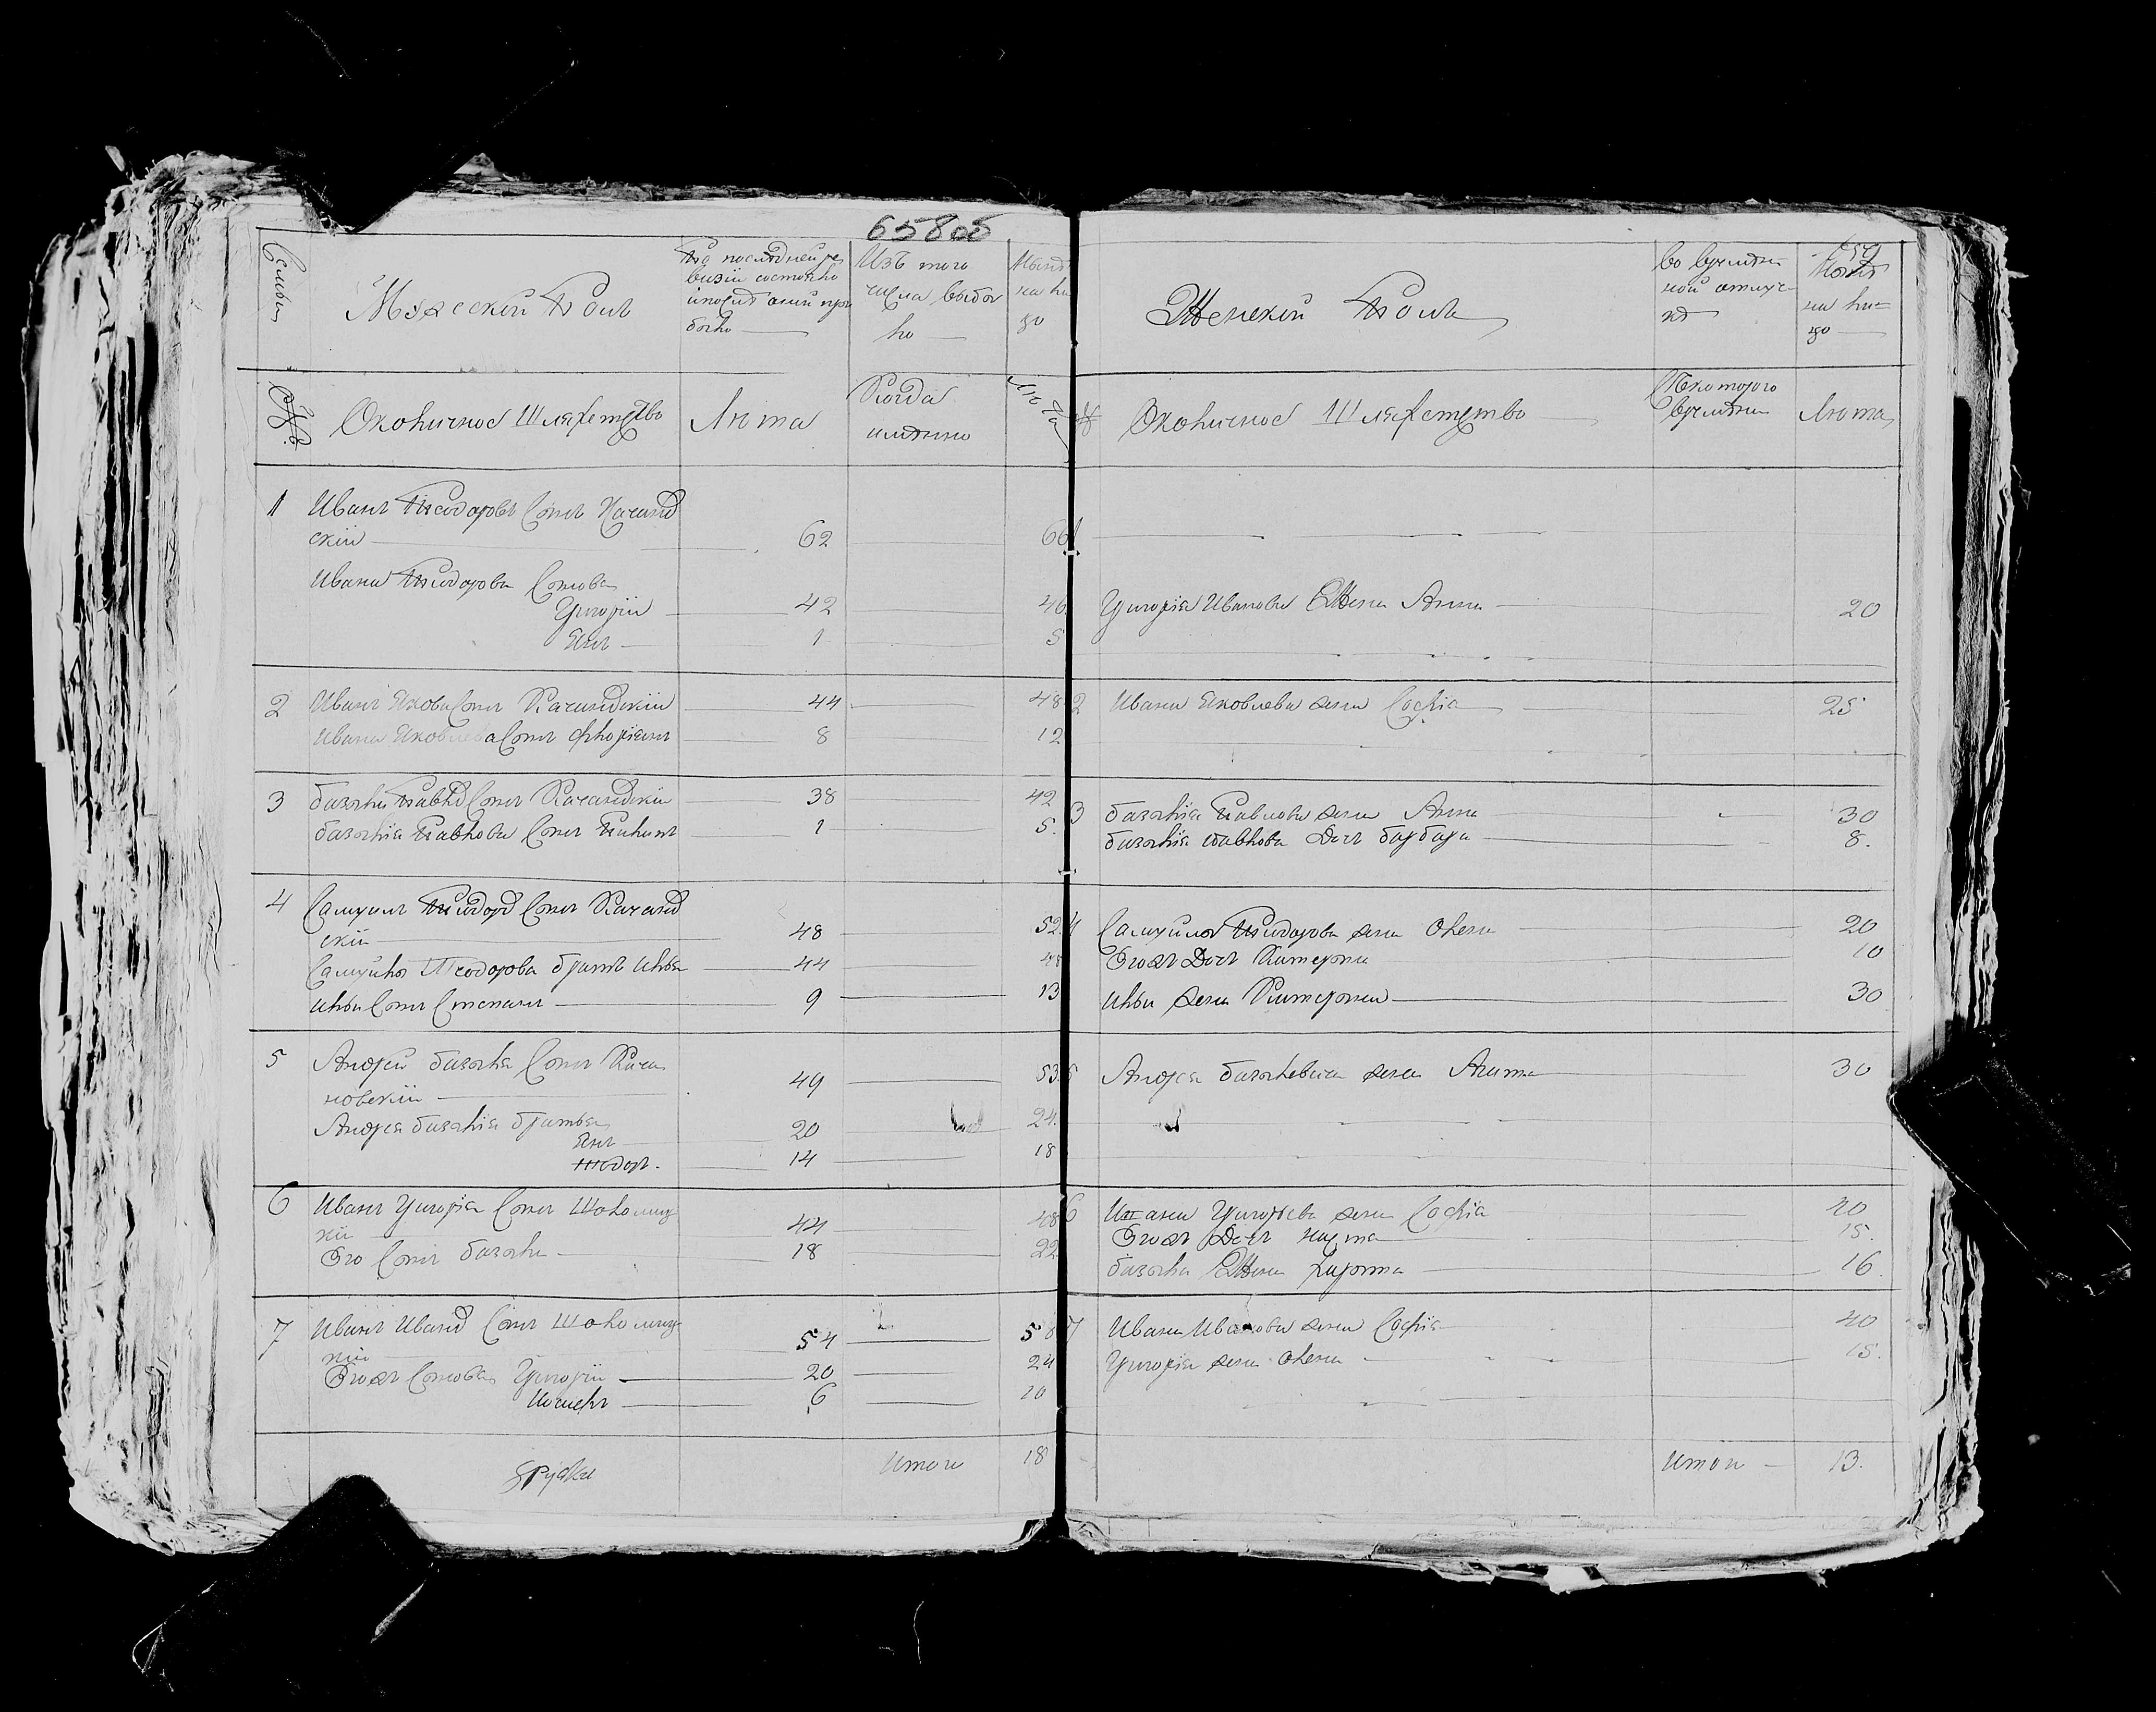 65805
Семьи
Мужескій Полъ
По послѣдней ре
визіи состояло
и послѣ оной при
было
Изъ того
числа выбы
ло
Нынѣ
на ли
цо
№
Околичное Шляхетство
Лѣта
Когда
имянно
Лѣта
1 Иванъ Теодоровъ Сынъ Качанов
скій 62 66
Ивана Теодорова Сыновья
Григорій 42 46
Янъ 1 5
2 Иванъ Якова Сынъ Качановскій 44 48
Ивана Яковлева Сынъ Флоріянъ 8 12
3 базыли Павл Сынъ Качановскій 38 42
базылія Павлова Сынъ 1 5
4 Самуилъ Теодор Сынъ Качанов
скій 48 52
Самуила Теодорова братъ Илья 44 48
Ильи Сынъ Степанъ 9 13
5 Андрей базыля Сынъ Кача
новскій 49 53
Андрея базылія братья
Янъ 20 24
Теодоръ 14 18
6 Иванъ Григорія Сынъ Шоломиц
кій 44 48
Его Сынъ базыли 18 22
7 Иванъ Иванов Сынъ Шоломиц
кій 54 58
Егожъ Сыновья Григорій 20 24
Иосифъ 6 10
Итого 18
Женскій Полъ
во времян
ной отлуч
кѣ
Нынѣ
на ли=
цо
№
Околичное Шляхетство
Съ котораго
времяни
Лѣта
1
Григорія Иванова Жена Анна 20
2 Ивана Яковлева жена Софія 25
3 базылія Павлова жена Анна 30
базылія Павлова Дочь барбара 8.
4 Самуила Теодорова жена Олена 20
Егожъ Дочь Катерина 10
Ильи жена Катерина 30
5 Андрея базылевича жена Агата 30
6 Ивана Григорьева жена Софія 40
Егожъ Дочь 15.
базыля Жена 16.
7 Ивана Иванова жена Софія 40
Григорія жена Олена 15.
Итого 13.